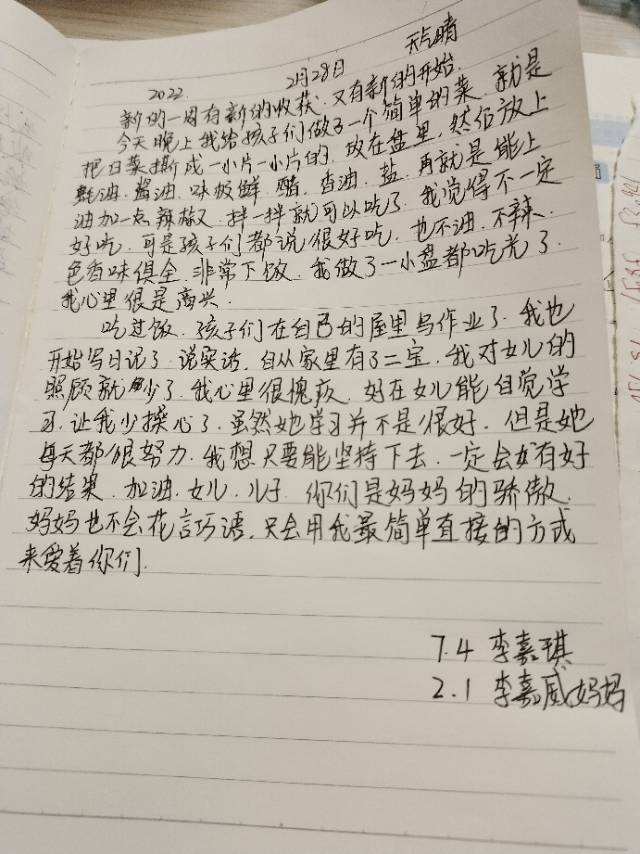 2022. 2月28日 天气晴
新的一周有新的收获.又有新的开始.
今天晚上我给孩子们做了一个简单的菜.就是
把白菜撕成一小片一小片的.放在盘里.然后放上
蚝油.酱油.味极鲜.醋.香油.盐.再就是能上
油加一点辣椒.拌一拌就可以吃了.我觉得不一定
好吃.可是孩子们都说很好吃.也不油.不辣.
色香味俱全.非常下饭.我做了一小盘都吃光了.
我心里很是高兴.
吃过饭.孩子们在自己的屋里写作业了.我也
开始写日记了.说实话.自从家里有了二宝.我对女儿的
照顾就少了.我心里很愧疚.好在女儿能自觉学
习.让我少操心了.虽然她学习并不是很好.但是她
每天都很努力.我想只要能坚持下去.一定会有好
的结果.加油.女儿.儿子.你们是妈妈的骄傲.
妈妈也不会花言巧语.只会用我最简单直接的方式
来爱着你们.
7.4 李嘉琪
2.1 李嘉威妈妈